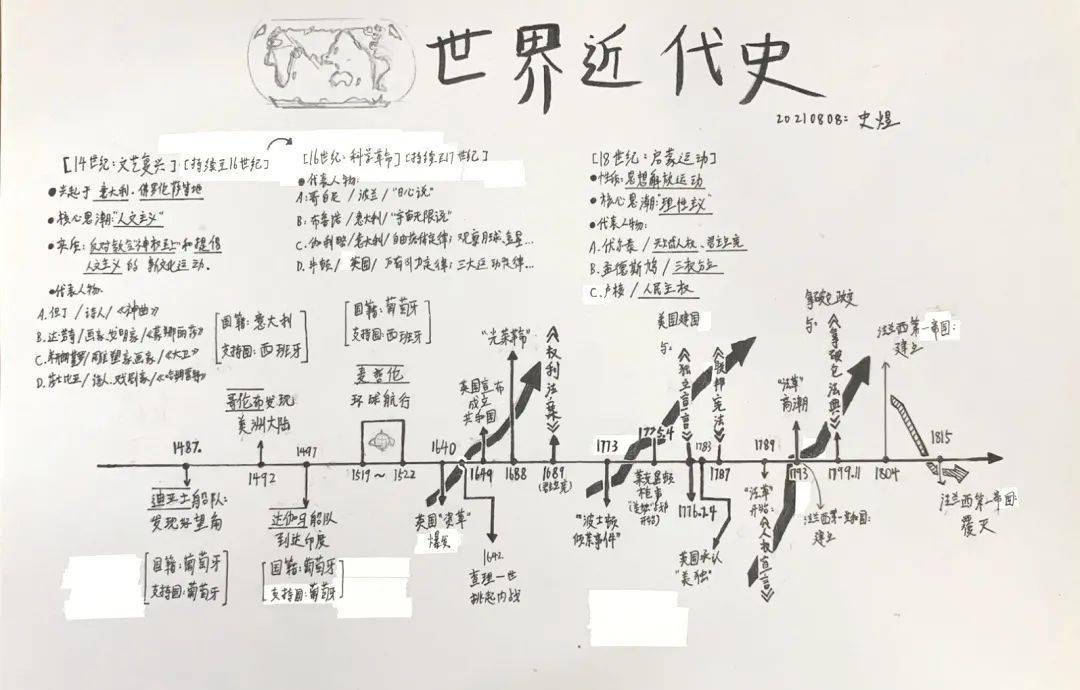 世界近代史
20210808: 史煜
[14世纪:文艺复兴] [持续至16世纪]
●兴起于 意大利·佛罗伦萨等地
●核心思潮:"人文主义"
●实质:反对教会神权至上和提倡
人文主义的新文化运动.
●代表人物:
A.但丁/诗人/《神曲》
B.达·芬奇/画家.发明家/《蒙娜丽莎》
C.米开朗基罗/雕塑家画家/《大卫》
D.莎士比亚/诗人.戏剧家/《哈姆雷特》
[16世纪:科学革命] [持续至17世纪]
●代表人物:
A:哥白尼/波兰/"日心说"
B:布鲁诺/意大利/"宇宙无限说"
C.伽利略/意大利/自由落体定律;观察月球、直星...
D.牛顿/英国/万有引力定律;三大运动定律...
[18世纪:启蒙运动]
●性质:思想解放运动
●核心思潮:"理性主义"
●代表人物:
A.伏尔泰/天赋人权、君主立宪
B.孟德斯鸠/三权分立
C.卢梭/人民主权
国籍:意大利
支持国:西班牙
哥伦布发现
美洲大陆
国籍:葡萄牙
支持国:西班牙
麦哲伦
环球航行
英国宣布
成立
共和国
"光荣革命"
《权利法案》
美国建国
与:
《独立宣言》
《联邦宪法》
"法革"
高潮
拿破仑政变
与:
《拿破仑法典》
法兰西第一帝国:
建立
1487.
1492
1497
1519～1522
1640
1649
1688
1689
(君主立宪)
1773
1775.4
1776.7.4
1783
1787
1789
1793
1799.11
1804
1815
迪亚士船队:
发现好望角
国籍:葡萄牙
支持国:葡萄牙
达伽马船队
到达印度
国籍:葡萄牙
支持国:葡萄牙
英国"资革"
爆发
1642
查理一世
挑起内战
"波士顿
倾茶事件"
莱克星顿
枪声
开始)
英国承认
"美独"
"法革"
开始:
《人权宣言》
法兰西第一共和国:
建立
法兰西第一帝国:
覆灭